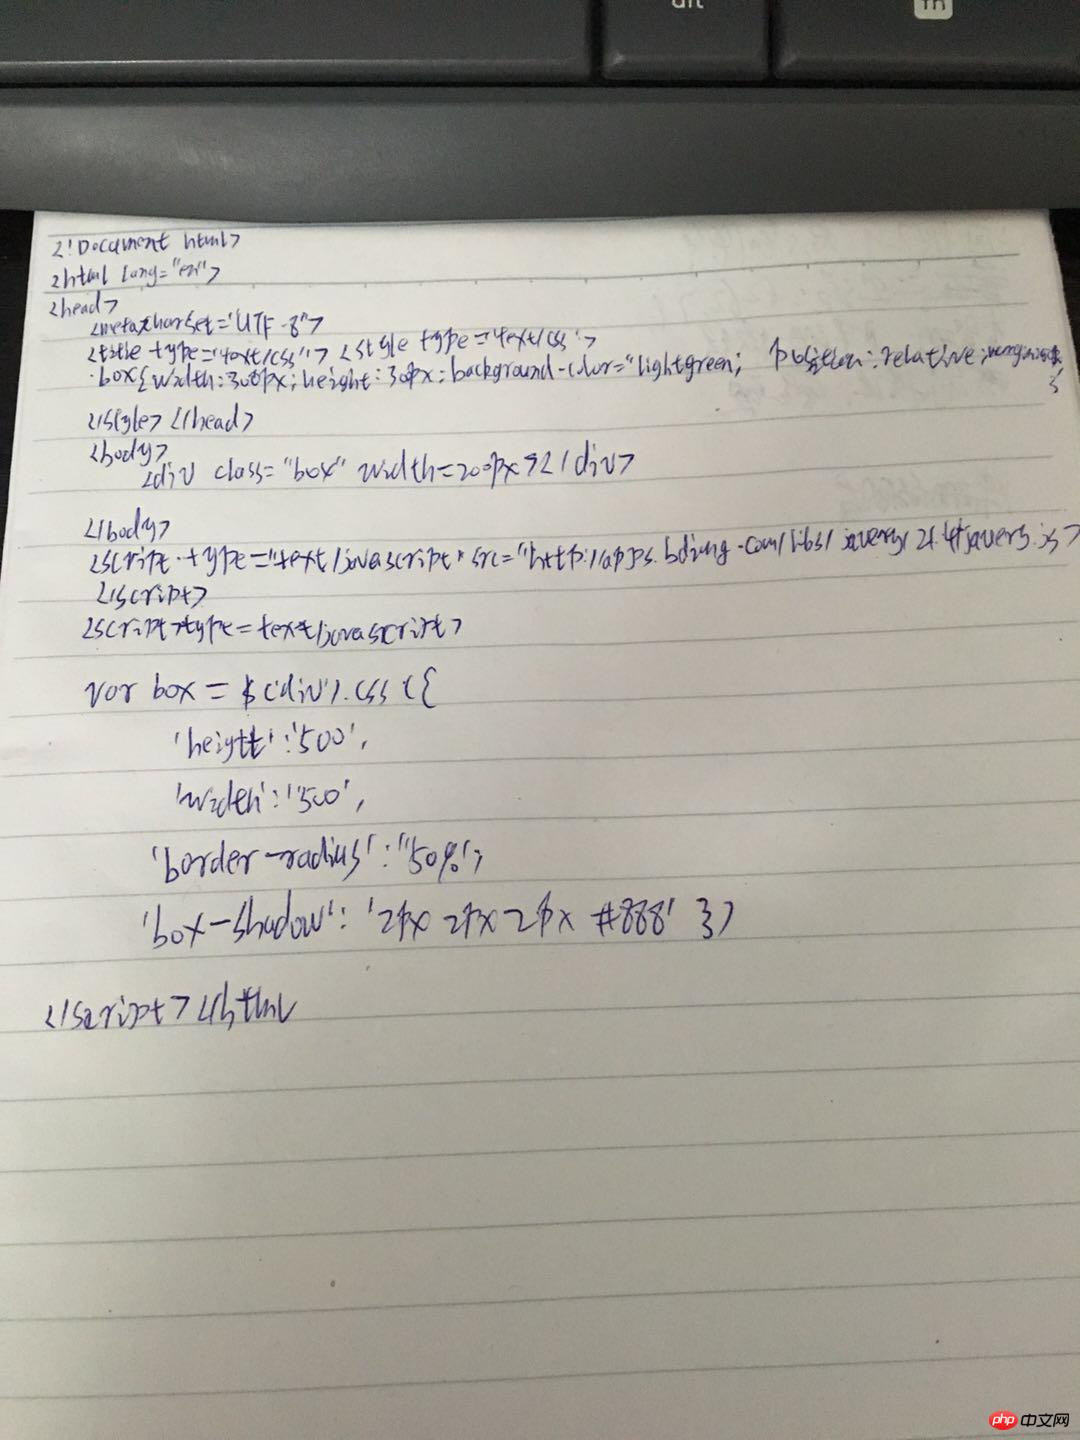 alt
fn
<!Document html>
<html lang="en">
<head>
<meta charset='UTF-8">
<title type='text/css"> <style type='text/css'>
.box{width:300px;height:30px;background-color="lightgreen; position:relative;
}
</style></head>
<body>
<div class="box" width=200px></div>
</body>
<script type="text/javascript" src="http://apps.bdimg.com/libs/
</script>
<script>type=text/javascript>
var box = $('div').css({
'height':'500',
'width':'500',
'border-radius':"50%',
'box-shadow': '2px 2px 2px #888' })
</script></html
php 中文网